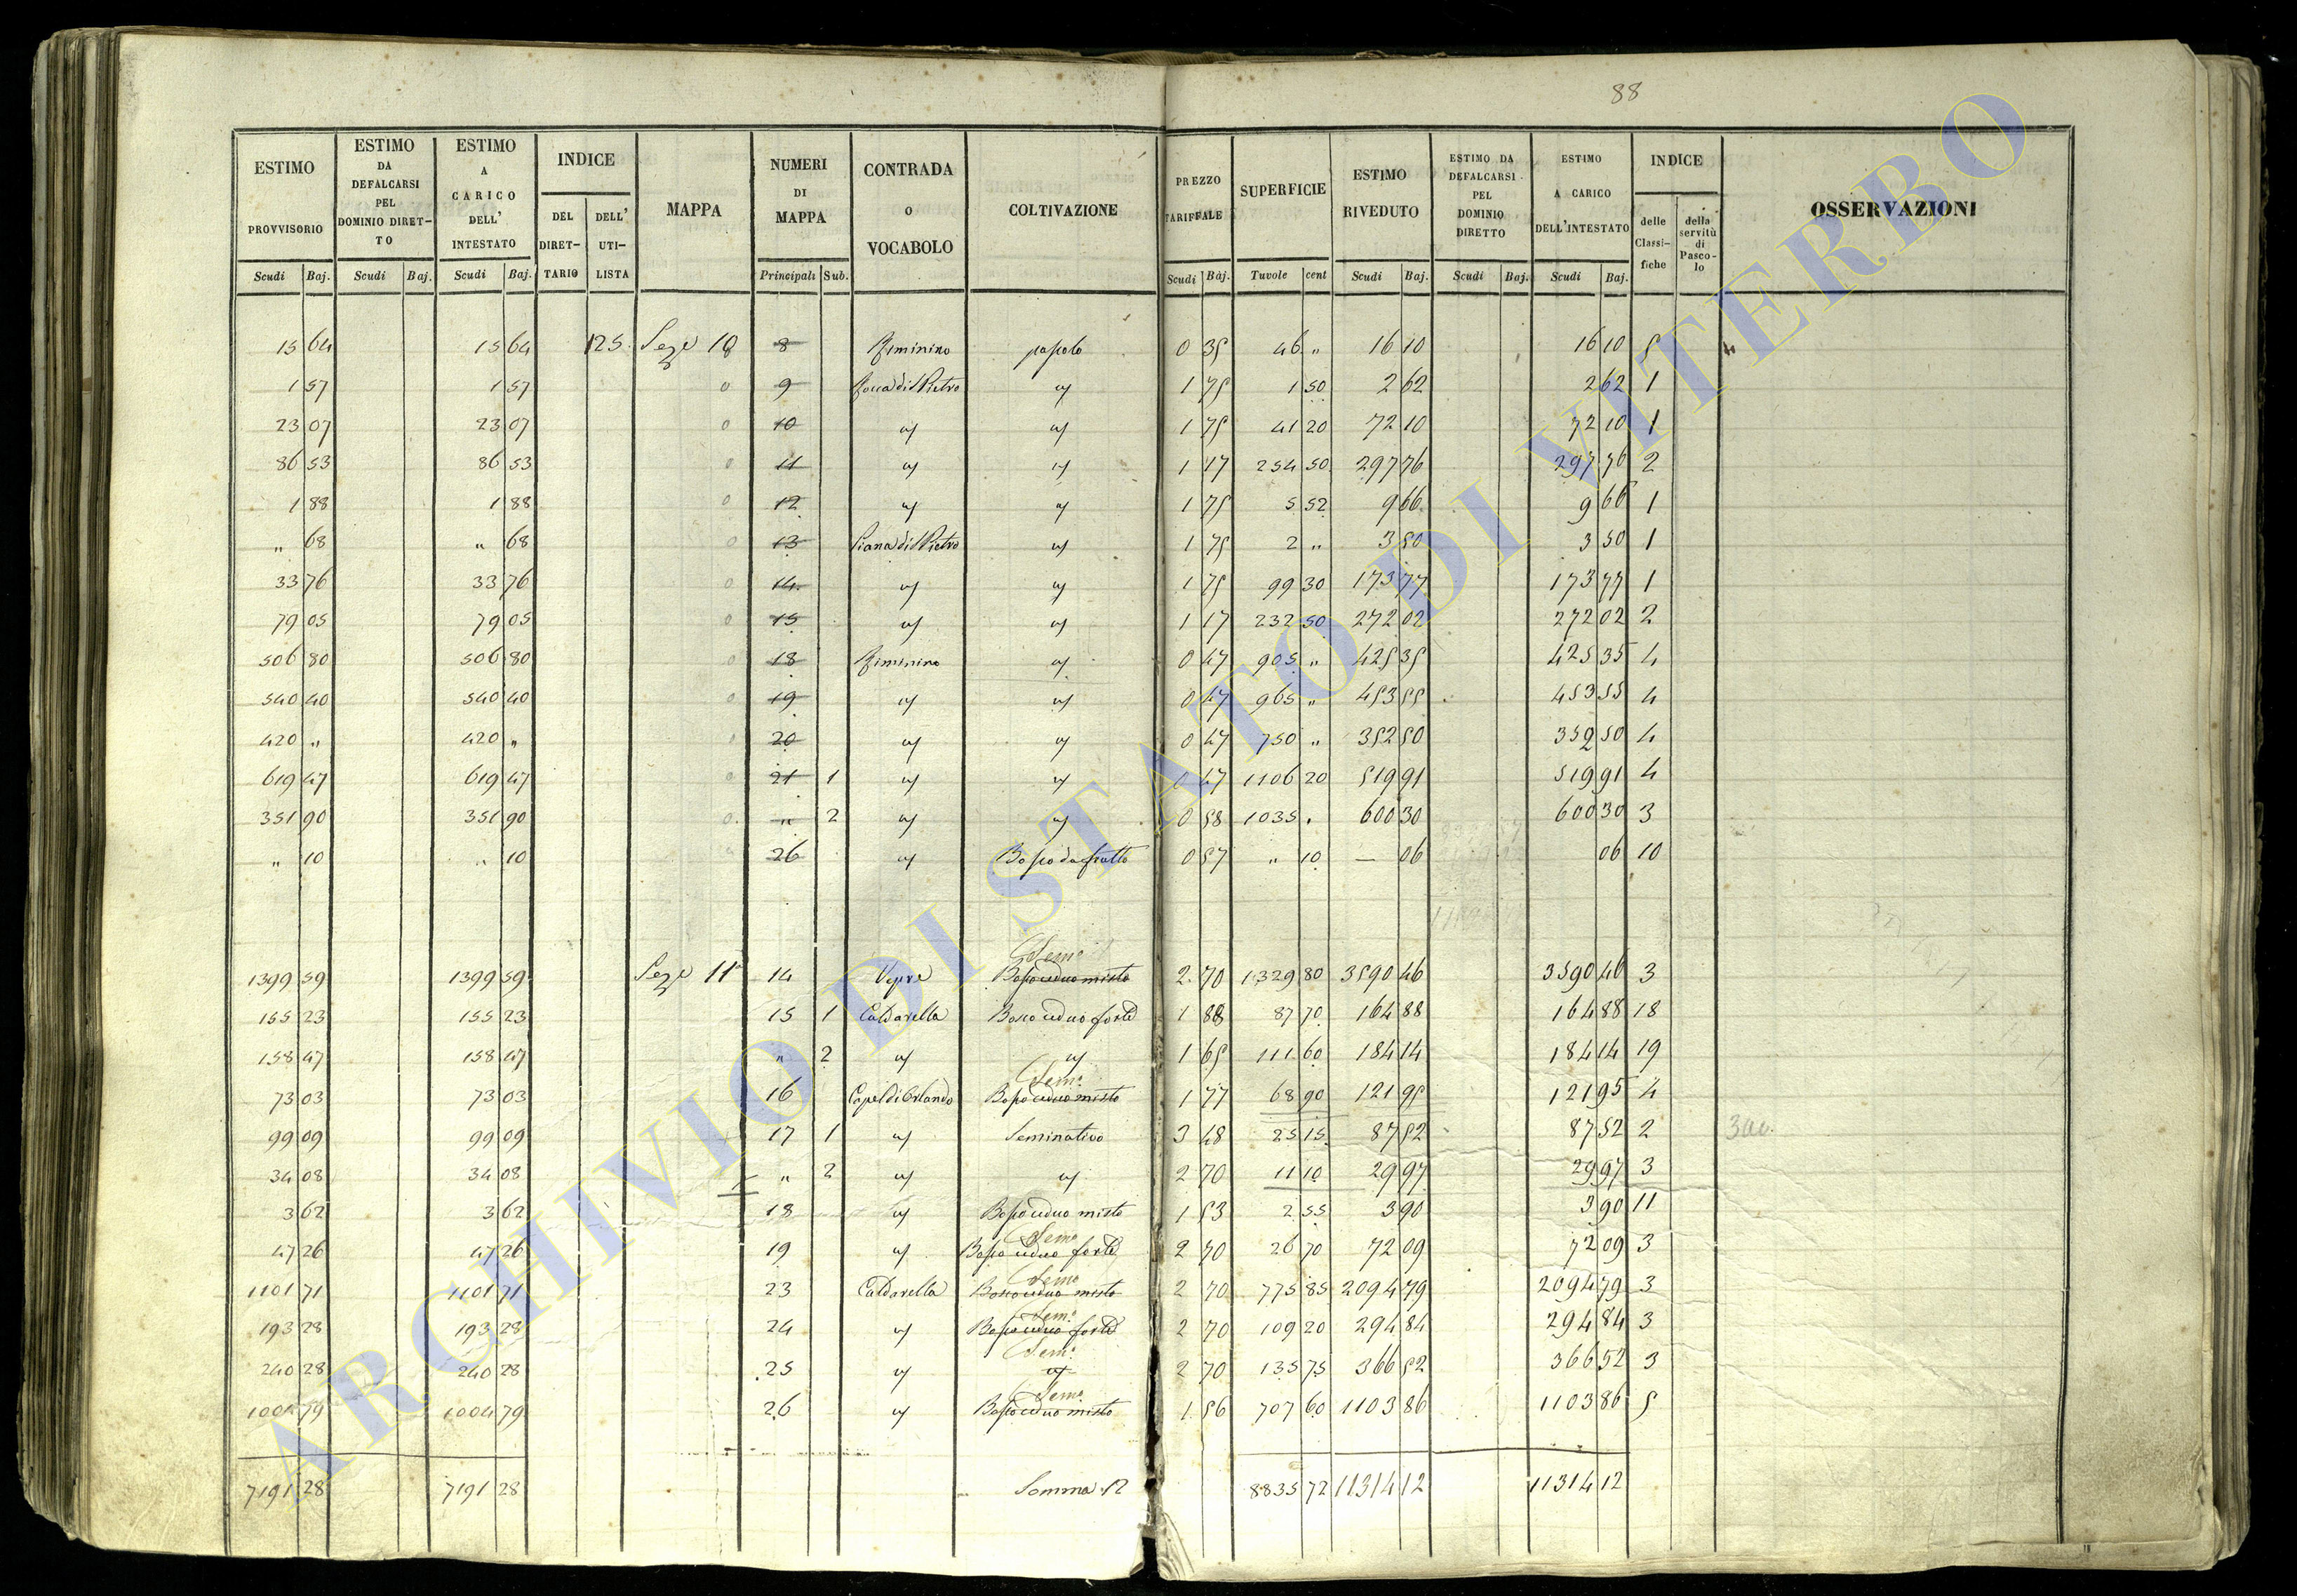 88
ESTIMO PROVVISORIO | ESTIMO DA DEFALCARSI PEL DOMINIO DIRETTO | ESTIMO A CARICO DELL' INTESTATO | INDICE | MAPPA | NUMERI DI MAPPA | CONTRADA O VOCABOLO | COLTIVAZIONE | PREZZO TARIFFALE | SUPERFICIE | ESTIMO RIVEDUTO | ESTIMO DA DEFALCARSI PEL DOMINIO DIRETTO | ESTIMO A CARICO DELL'INTESTATO | INDICE | OSSERVAZIONI
DEL DIRETTARIO | DELL' UTILISTA | delle Classifiche | della servitù di Pascolo
Scudi | Baj. | Scudi | Baj. | Scudi | Baj. | Principali | Sub. | Scudi | Baj. | Tavole | cent | Scudi | Baj. | Scudi | Baj. | Scudi | Baj.
15 64 | 15 64 | 125 | Sez.e 10 | 8 | Riminino | pascolo | 0 35 | 46 " | 16 10 | 16 10 | 5
1 57 | 1 57 | 0 | 9 | Rocca di S Pietro | " | 1 75 | 1 50 | 2 62 | 2 62 | 1
23 07 | 23 07 | 0 | 10 | " | " | 1 75 | 41 20 | 72 10 | 72 10 | 1
86 53 | 86 53 | 0 | 11 | " | " | 1 17 | 254 50 | 297 76 | 297 76 | 2
1 88 | 1 88 | 0 | 12 | " | " | 1 75 | 5 52 | 9 66 | 9 66 | 1
" 68 | " 68 | 0 | 13 | Piana di S Pietro | " | 1 75 | 2 " | 3 50 | 3 50 | 1
33 76 | 33 76 | 0 | 14 | " | " | 1 75 | 99 30 | 173 77 | 173 77 | 1
79 05 | 79 05 | 0 | 15 | " | " | 1 17 | 232 50 | 272 02 | 272 02 | 2
506 80 | 506 80 | 0 | 18 | Riminino | " | 0 47 | 905 " | 425 35 | 425 35 | 4
540 40 | 540 40 | 0 | 19 | " | " | 0 47 | 965 " | 453 55 | 453 55 | 4
420 " | 420 " | 20 | " | " | 0 47 | 750 " | 352 50 | 352 50 | 4
619 47 | 619 47 | 0 | 21 | 1 | " | " | 0 47 | 1106 20 | 519 91 | 519 91 | 4
351 90 | 351 90 | 0 | " | 2 | " | " | 0 58 | 1035 " | 600 30 | 600 30 | 3
" 10 | " 10 | 26 | " | Bosco da frutto | 0 57 | " 10 | — 06 | 06 | 10
Sem.o
1399 59 | 1399 59 | Sez.e 11 | 14 | Vepre | Bosco ceduo misto | 2 70 | 1329 80 | 3590 46 | 3590 46 | 3
155 23 | 155 23 | 15 | 1 | Caldarella | Bosco ceduo forte | 1 88 | 87 70 | 164 88 | 164 88 | 18
158 47 | 158 47 | " | 2 | " | " | 1 65 | 111 60 | 184 14 | 184 14 | 19
Sem.o
73 03 | 73 03 | 16 | Capel di Orlando | Bosco ceduo misto | 1 77 | 68 90 | 121 95 | 121 95 | 4
99 09 | 99 09 | 17 | 1 | " | Seminativo | 3 48 | 25 15 | 87 52 | 87 52 | 2
34 08 | 34 08 | " | 2 | " | " | 2 70 | 11 10 | 29 97 | 29 97 | 3
3 62 | 3 62 | 18 | " | Bosco ceduo misto | 1 53 | 2 55 | 3 90 | 3 90 | 11
Sem.o
47 26 | 47 26 | 19 | " | Bosco ceduo forte | 2 70 | 26 70 | 72 09 | 72 09 | 3
Sem.o
1101 71 | 1101 71 | 23 | Caldarella | Bosco ceduo misto | 2 70 | 775 85 | 2094 79 | 2094 79 | 3
Sem.o
193 28 | 193 28 | 24 | " | Bosco ceduo forte | 2 70 | 109 20 | 294 84 | 294 84 | 3
Sem.o
240 28 | 240 28 | 25 | " | " | 2 70 | 135 75 | 366 52 | 366 52 | 3
Sem.o
1004 79 | 1004 79 | 26 | " | Bosco ceduo misto | 1 56 | 707 60 | 1103 86 | 1103 86 | 5
7191 28 | 7191 28 | Somma | 8835 72 | 11314 12 | 11314 12
ARCHIVIO DI STATO DI VITERBO